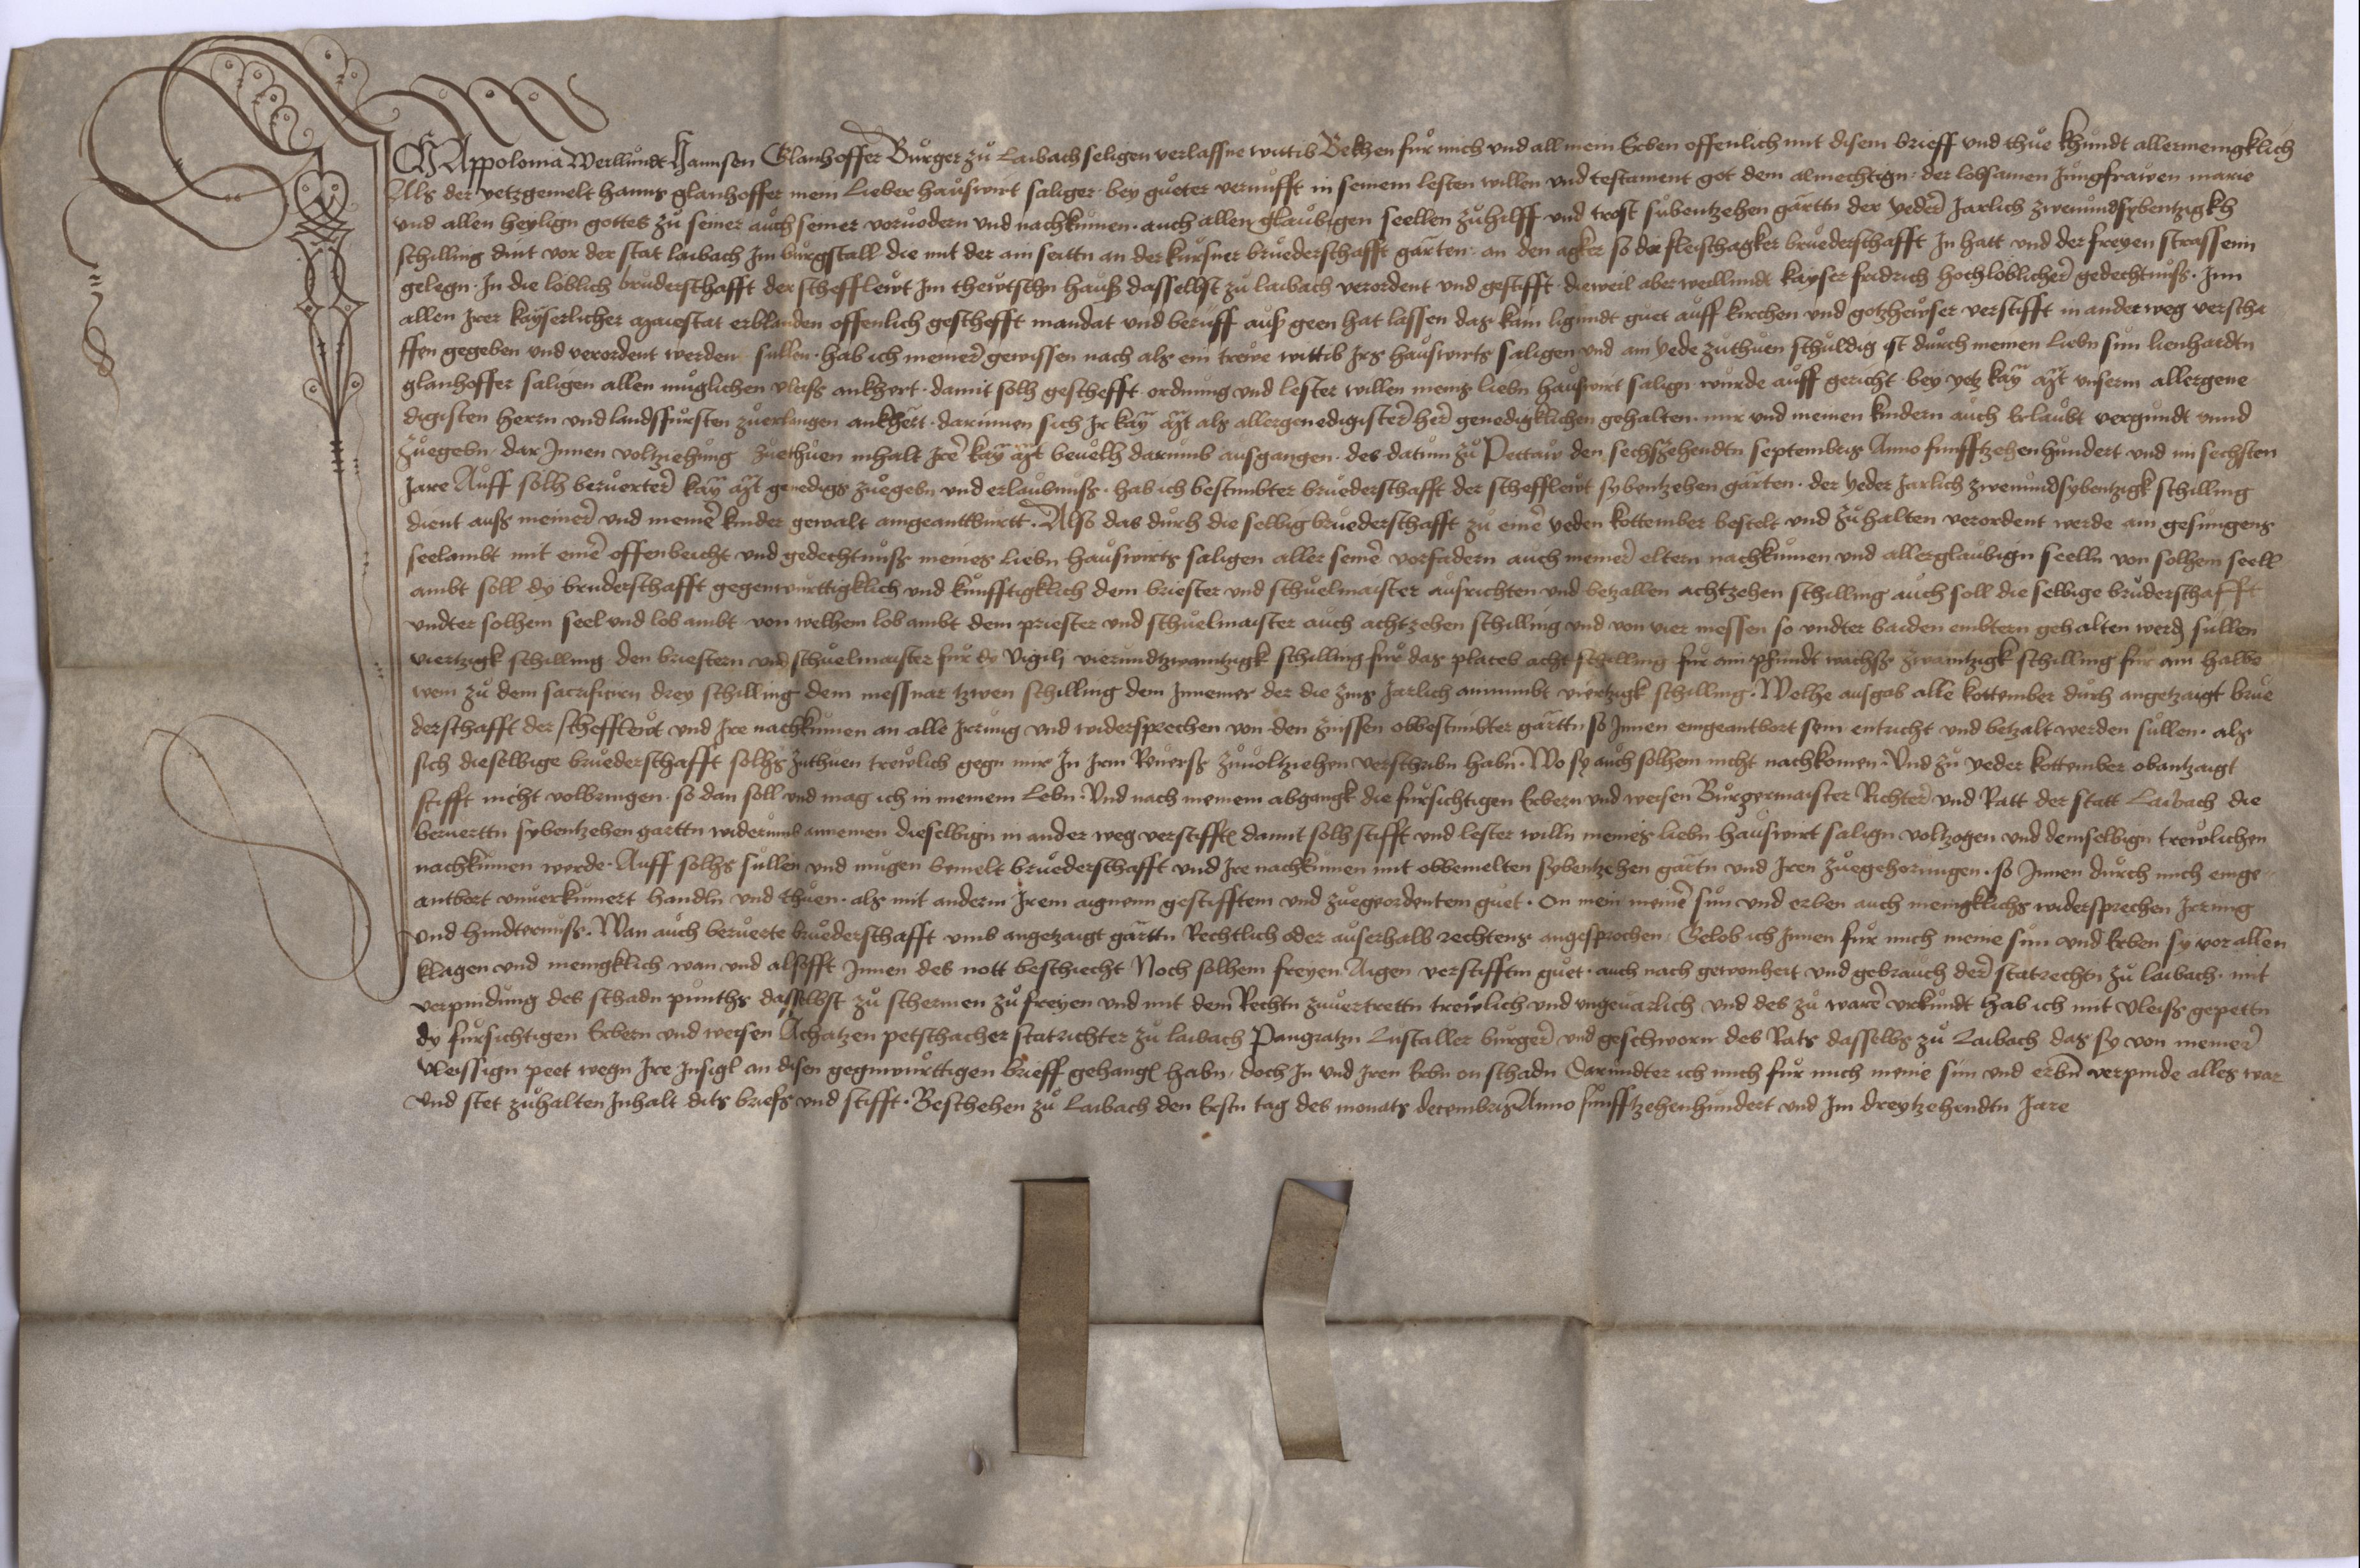 ICh Appolonia Weillundt Hannsen Glanhoffer Burger zů Laibach seligen verlassne wittib Bekhen fůr mich und all mein Erben offenlich mit disem brieff und thůe khundt allermenigklich
Als der yetzgemelt hanns glanhoffer mein Lieber haůswirt saliger bey gůeter vernůfft in seinem lesten willen und testament got dem almechtign der lobsamen Jůngfraẃen marie
und allen heylign gottes zů seiner aůch seiner voruodern und nachkumen auch allen glaůbigen seellen zůhilff und trost sůbentzehen gärttn der yeder Jarlich zwenundsybentzigkh
schilling dint vor der stat laibach Im burgstall die mit der ain seittn an der kürsner brůederschafft gärten an den agker so die fleischagker brůederschafft In hatt und der freyen strassenn
gelegn In die loblich bruderschafft der schefflewt Im thewtschn hauß dasselbst zů laibach verordent und gestifft dieweil aber weillundt kayser fridrich hochloblicher gedechtnůß Inn
allen Irer kayserlicher Maiestat erblanden offenlich geschefft mandat und berůff auß geen hat lassen das kain ligundt guet auff kirchen und gotzhewser verstifft in ander weg verscha
ffen gegeben und verordent werden sullen hab ich meiner gewissen nach als ein trewe wittib Irs haůswirts saligen und ain yede zuthuen schuldig ist durch meinen Liebn sun lienhardtn
glanhoffer saligen allen můglichen vlaß ankhert damit solh geschefft ordnung und lester willen meins liebn hauswirt salign wurde auff gericht bey yetz kay Mt unserm allergene
digisten herrn und landsfůrsten zůerlangen ankhert darinnen sich Ir kay Mt als allergenedigister her genedigklichen gehalten mir und meinen kindern aůch Erlaůbt vergundt unnd
zůegebn dar Innen volziehung zuethuen inhalt Irer kay Mt beuelh darumb ausgangen des datum zů Pettaw den sechszehendtn septembris Anno funfftzehenhundert und im sechsten
Jare Auff solh beruerter kay Mt genedigs zůegebn und erlaubnůß hab ich bestimbter bruederschafft der schefflewt sybentzehen gärten der yeder Jarlich zwenundsybentzigk schilling
dient auß meiner und meiner kinder gewalt aingeanttburtt Also das durch die selbig brůederschafft zů einer yeden kottember bestelt und zůhalten verordent werde ain gesungens
seelambt mit einer offenbeicht und gedechtnůß meines Liebn haůswirts saligen aller seiner vorfadern auch meiner eltern nachkůmen und allerglaubign seelln von solhem seell
ambt soll dy brůderschafft gegenwurttigklich und kůnfftigklich dem briester und schůelmaister ausrichten und betzallen achtzehen schilling aůch soll die selbige brůderschafft
undter solhem seel und lob ambt von welhem lob ambt dem priester und schůelmaister auch achtzehen schilling und von vier messen so undter baiden embtern gehalten werden sullen
viertzigk schilling den briestern und schůelmaister fůr dy Vigilj vierundtzwaintzigk schilling fůr das placeb acht schilling fůr ain pfundt wachß zwaintzigk schilling fůr ain halbe
wein zů dem sacrificirn drey schilling dem messnar tzwen schilling dem Innemer der die zins Jarlich ainnimbt viertzigk schilling Welhe ausgab alle kottember durch angetzaigt brůe
derschafft der schefflewt und Ire nachkůmen an alle Irrung und widersprechen von den zinssen obbestimbter gärttn so Innen eingeantbort sein entricht und betzalt werden sůllen als
sich dieselbige brůederschafft solhs zuthuen trewlich gegn mir In Irm Reuerß zůuoltziehen verschribn habn Wo sy aůch solhem nicht nachkomen Und zů yeder kottember obantzaigt
stifft nicht volbringen so dan soll und mag ich in meinem Lebn Und nach meinem abgangk die fůrsichtigen Erbern und weisen Bůrgermaister Richter und Ratt der statt Laibach die
beruerttn sybentzehen garttn widerumb annemen dieselbign in ander weg verstifften damit solh stifft und lester willn meines liebn haůswirt salign voltzogen und demselbign trewlichen
nachkůmen werde Auff solhs sůllen und můgen bemelt brůederschafft und Ire nachkůmen mit obbemelten sybentzehen gärtn und Iren zůegehorungen so Innen durch mich einge
antbort unuerkumert handln und thuen als mit anderm Irem aignem gestifftem und zůegeordentem guet On mein meiner sun und erben auch menigklichs widersprechen Irrung
Und hindternůß Wan aůch beruerte brůederschafft umb angetzaigt gärttn Rechtlich oder aůserhalb rechtens angesprochen Gelob ich Innen fůr mich meine sun und Erben sy vor allen
klagen und menigklich wan und alsofft Innen des nott beschiecht Noch solhem freyen Aigen verstifftm gůet auch nach gewonheit und gebrauch der statrechtn zů laibach mit
verpindung des schadn punths dasselbst zů schermen zů freyen und mit dem Rechtn zuuertrettn trewlich und ungeuarlich und des zů warer urkůndt hab ich mit Vleiß gepettn
dy fůrsichtigen Erbern und weisen Achatzen petschacher statrichter zů laibach Pangratzn Lustaller burger und geschworn des Rats dasselbs zů Laibach das sy von meiner
Vleissign peet wegn Ire Insigl an disen gegnwůrttigen brieff gehangn habn doch In und Iren Erbn on schadn Darundter ich mich fůr mich meine sun und erbn verpinde alles war
Und stet zůhalten Inhalt dits brieffs und stifft Beschehen zů Laibach den Erstn tag des monats decembris Anno fůnfftzehenhůndert und Im dreytzehendtn Jare